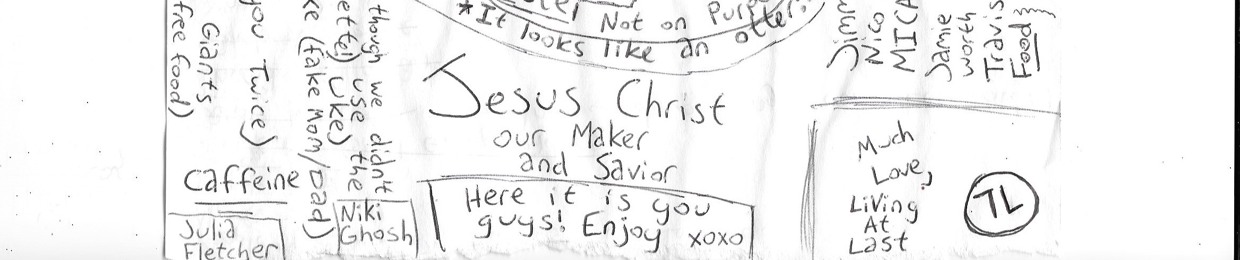 Not on Purp
*It looks like an otter.
Jesus Christ
our Maker
and Savior
Here it is you
guys! Enjoy xoxo
Giants
free food)
you Twice)
Caffeine
Julia
Fletcher
ke (fake Mom/Dad)
uke)
though we didn't
use the
Niki
Ghosh
Simm
Nico
MICA
Jamie
worth
Travis
Food
Much
Love,
Living
At
Last
TL